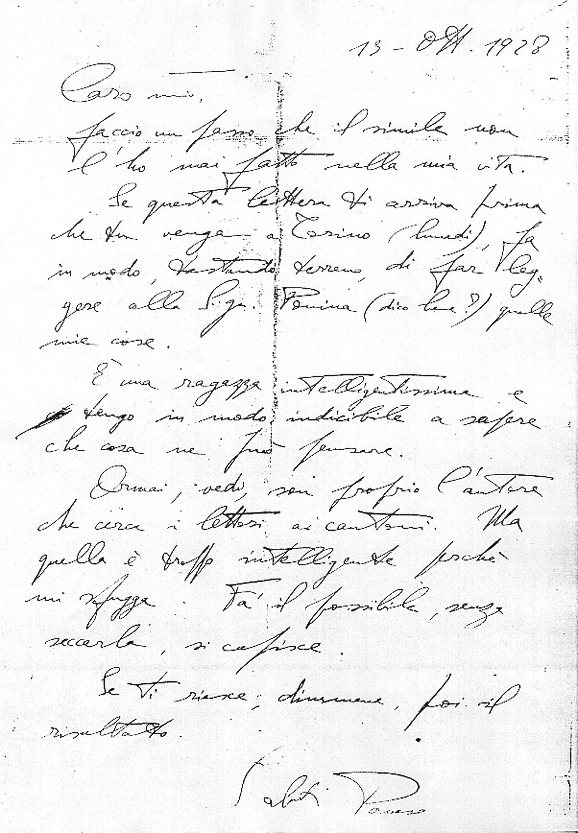 13 - Ott. 1928
Caro mio,
faccio un passo che il simile non
l'ho mai fatto nella mia vita.
Se questa lettera ti arriva prima
che tu venga a Torino (lunedì), fa
in modo, tastando terreno, di far leg-
gere alla Sign. Pinina (dico bene?) quelle
mie cose.
È una ragazza intelligentissima e
tengo in modo indicibile a sapere
che cosa ne può pensare.
Ormai, vedi, son proprio l'autore
che cerca i lettori ai cantoni. Ma
quella è troppo intelligente perché
mi sfugga. Fa' il possibile, senza
seccarla, si capisce.
Se ti riesce, dimmene, poi il
risultato.
Saluti Pavese